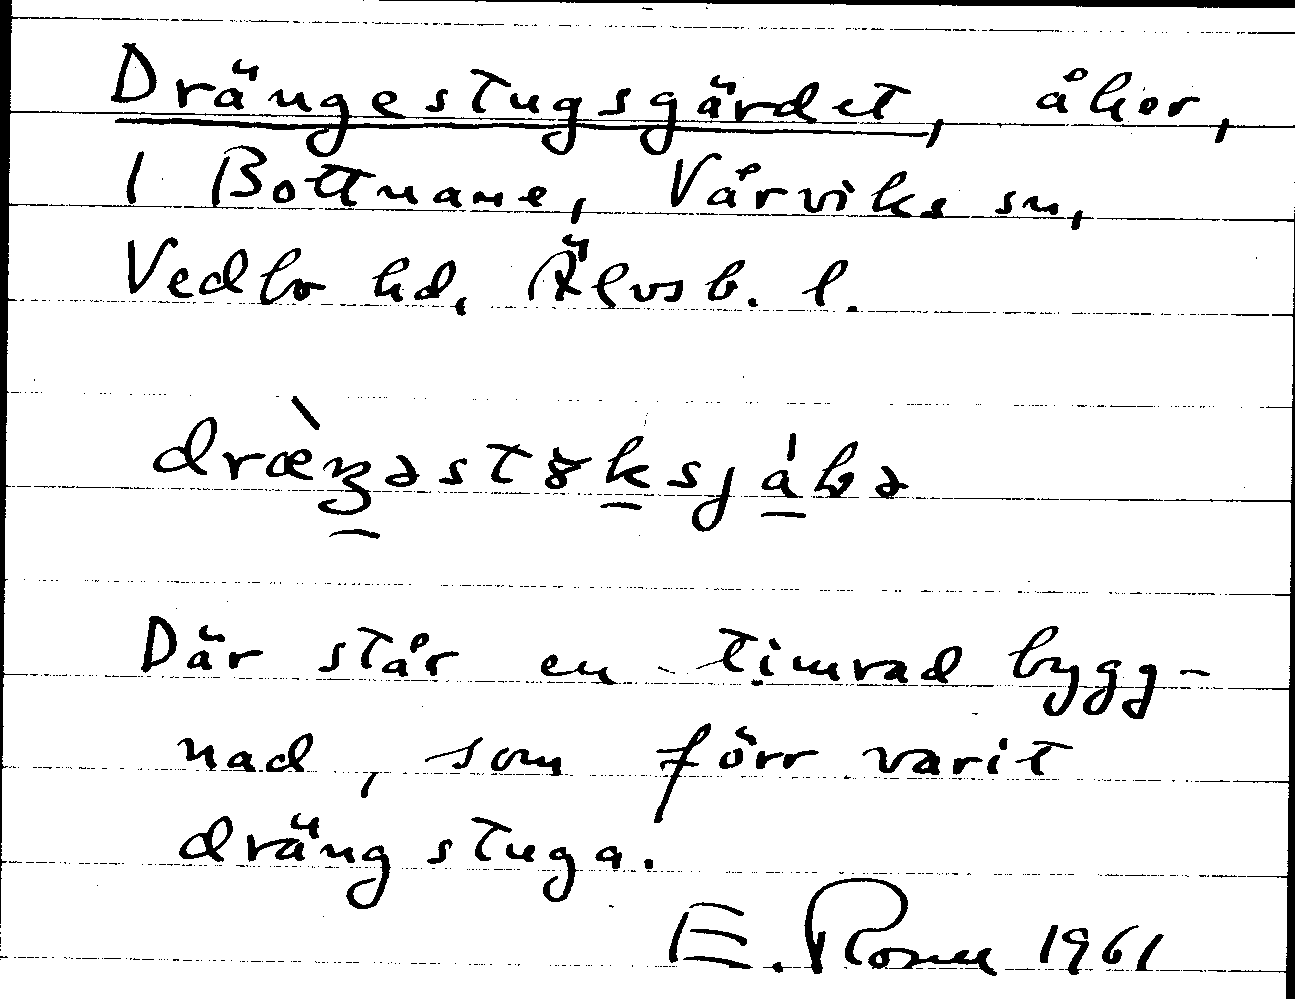 Drängestugsgärdet, åker,
1 Bottnane, Vårviks sn,
Vedbo hd, Älvsb. l.
Där står en timrad bygg-
nad, som förr varit
drängstuga.
E. Rosell 1961